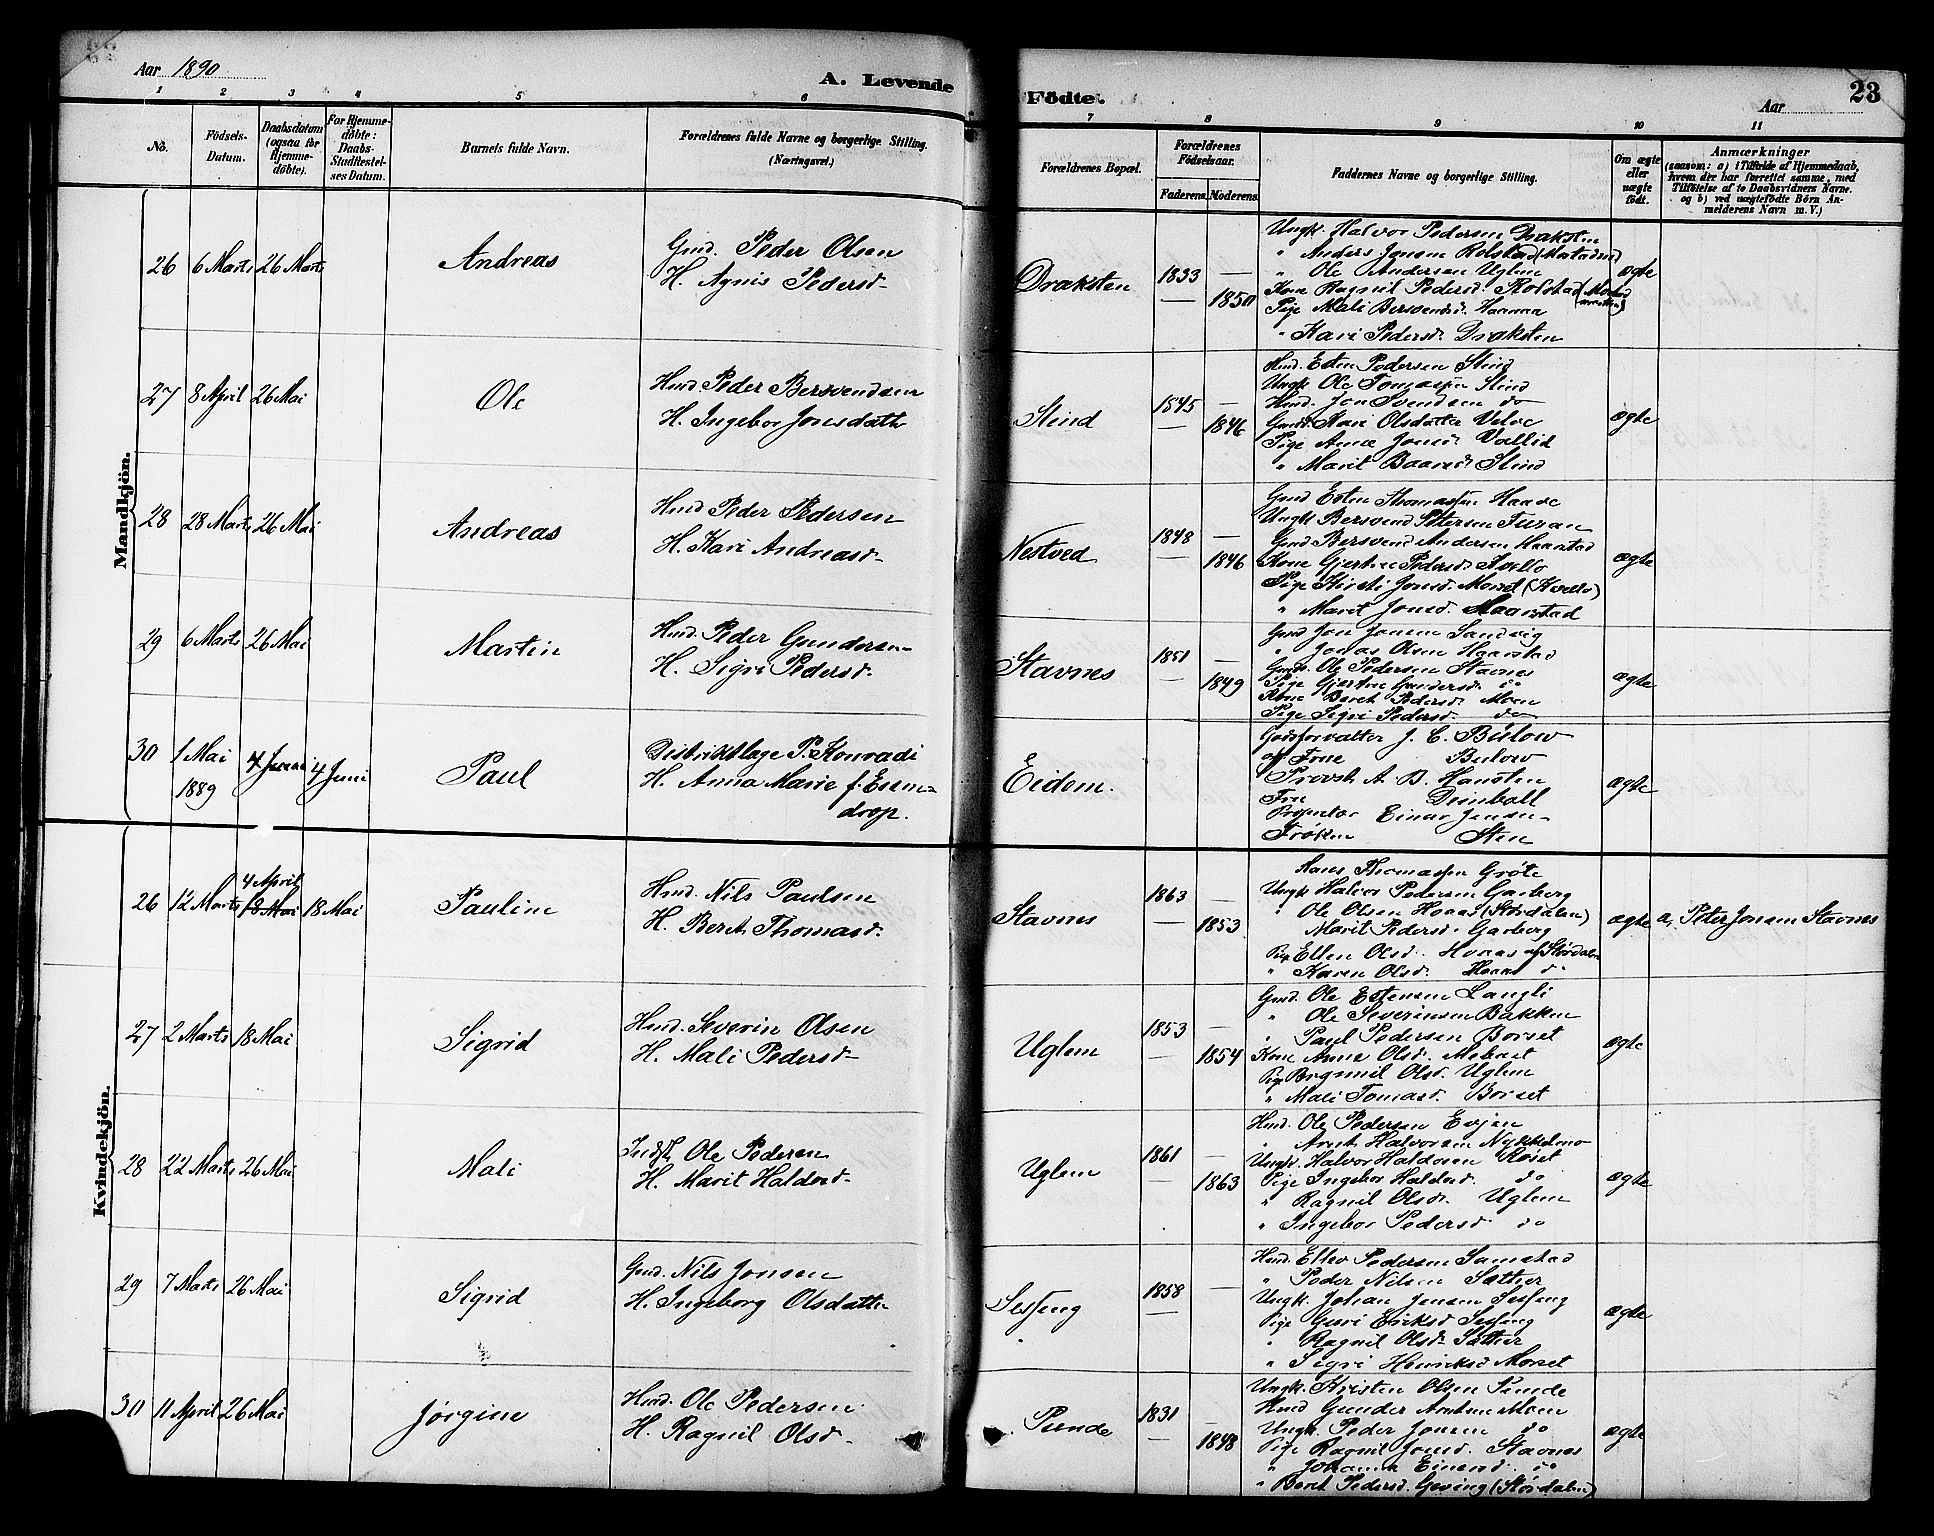 Aar 1890
A. Levende Födte.
Aar
23
1 2 3 4 5 6 7 8 9 10 11
No.
Födsels-Datum.
Daabsdatum (ogsaa for Hjemme-döbte).
For Hjemme-döbte: Daabs-Stadfæstel-ses Datum.
Barnets fulde Navn.
Forældrenes fulde Navne og borgerlige Stilling. (Næringsvei.)
Forældrenes Bopæl.
Forældrenes Födselsaar.
Faderens. Moderens.
Faddernes Navne og borgerlige Stilling.
Om ægte eller uægte födt.
Anmærkninger
(saasom: a) i Tilfælde af Hjemmedaab, hvem der har forrettet samme, med Tilföielse af to Daabsvidners Navne. og b) ved uægtefödte Börn An-melderens Navn m. V.)
Mandkjön.
26 6 Marts 26 Marts
Andreas
Gmd. Peder Olsen
H. Agnis Pedersd.
Draksten
1833
1850
Ungk. Halvor Pedersen Draksten
" Anders Jonsen Rolstad
" Ole Andersen Uglem
Kone Ragnil Pedersd.
Pige Mali Bersvendsd.
" Kari Pedersd. Draksten
ægte
27 8 April 26 Mai
Ole
Hmd. Peder Bersvendsen
H. Ingebor Jonsdatte
Slind
1845
1846
Hmd. Esten Pedersen Slind
Ungk. Ole Tomassen Slind
Hmd. Jon Svendsen do
Gmd. Kari Olsdatte Velve
Pige Anne Jonsd. Vallid
" Marit Baarsd. Slind
ægte
28 28 Marts 26 Mai
Andreas
Hmd Peder Pedersen
H. Kari Andreasd.
Nestved
1848
1846
Gmd Esten Thomassen Haave
Ungk. Bersvend Pettersen Furan
Gmd. Bersvend Andersen Haarstad
Kone Gjertrue Pedersd.
Pige Kirsti Jonsd. Morset
" Marit Jonsd. Haarstad
ægte
29 6 Marts 26 Mai
Martin
Hmd. Peder Gundersen
H. Sigri Pedersd.
Stavnes
1851
1849
Gmd Jon Jonsen Sandvig
" Jonas Olsen Haarstad
Gmd. Ole Pedersen Stavnes
Pige Gjertrue Gundersd. do
Kone Beret Pedersd. Moen
Pige Sigri Pedersd. do
ægte
30 1 Mai 1889 4 Juni 4 Juni
Paul
Distriktslæge P. Konradi
H. Anna Marie f. Esen-
drop.
Eidem.
Godsforvalter J. C. Bülow
og Frue Bülow
Provst A. B. Hansten
Fru Deinboll
Propritær Einar Jensen
Frøken Sten
ægte
Kvindekjön.
26 12 Marts 4 April 18 Mai 18 Mai
Pauline
Hmd. Nils Paulsen
H. Beret Thomasd.
Stavnes
1863
1853
Hans Thomassen Grøte
Ungk. Halvor Pedersen Garberg
" Ole Olsen Hoaas (Størdalen)
Marit Pedersd. Garberg
Pig Ellen Olsd. Hoaas af Størdalen
" Karen Olsd. Hoaas do
ægte
a, Peter Jonsen Stavnes
27 2 Marts 18 Mai
Sigrid
Hmd. Severin Olsen
H. Mali Pedersd.
Uglem
1853
1854
Gmd. Ole Estensen Langli
" Ole Severinsen Bakken
" Paul Pedersen Borset
Kone Anne Olsd.
Pige Ragnil Olsd. Uglem
" Mali Tomasd. Borset
ægte
28 22 Marts 26 Mai
Mali
Inds. Ole Pedersen
H. Marit Haldosd.
Uglem
1861
1863
Hmd. Ole Pedersen Evjen
" Arnt Halvorsen Nykkelmo
Ungk. Halvor Haldosen Røset
Pige Ingebor Haldosd. do
" Ragnil Olsd. Uglem
" Ingebor Pedersd. do
ægte
29 7 Marts 26 Mai
Sigrid
Gmd. Nils Jonsen
H. Ingeborg Olsdatter
Sesseng
1858
Hmd. Ellev Pedersen Samstad
" Peder Nilsen Sæther
Ungk. Johan Jensen Sesseng
Pige Guri Eriksd Sesseng
" Ragnil Olsd. Sæther
" Sigri Henriksd Morset
ægte
30 11 April 26 Mai
Jørgine
Hmd. Ole Pedersen
H. Ragnil Olsd.
Runde
1831
1848
Ungk. Kristen Olsen
Hmd Gunder Arntsen Moen
Ungk. Peder Jonsen do
Pige Ragnil Jonsd. Stavnes
" Johanna Einarsd. do
" Beret Pedersd. Geving (Størdalen)
ægte